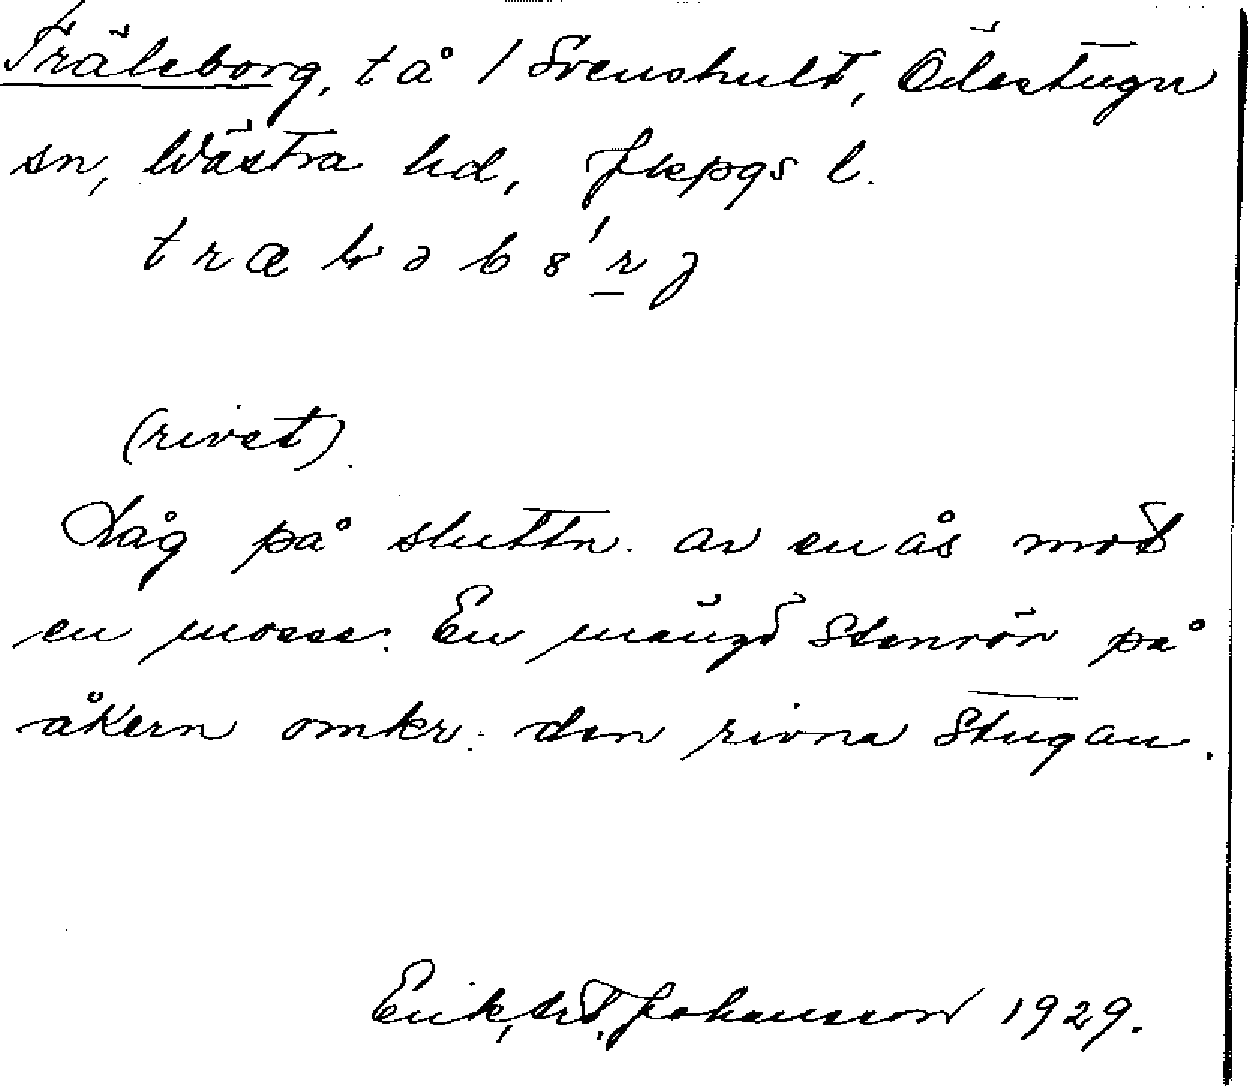 Träleborg, t å / Svenshult, Ödestugu
sn, Västra hd, Jkpgs l.
(rivet).
Låg på sluttn. av en ås mot
en mosse. En mängd stenrör på
åkern omkr. den rivna stugan.
Erik Johansson 1929.